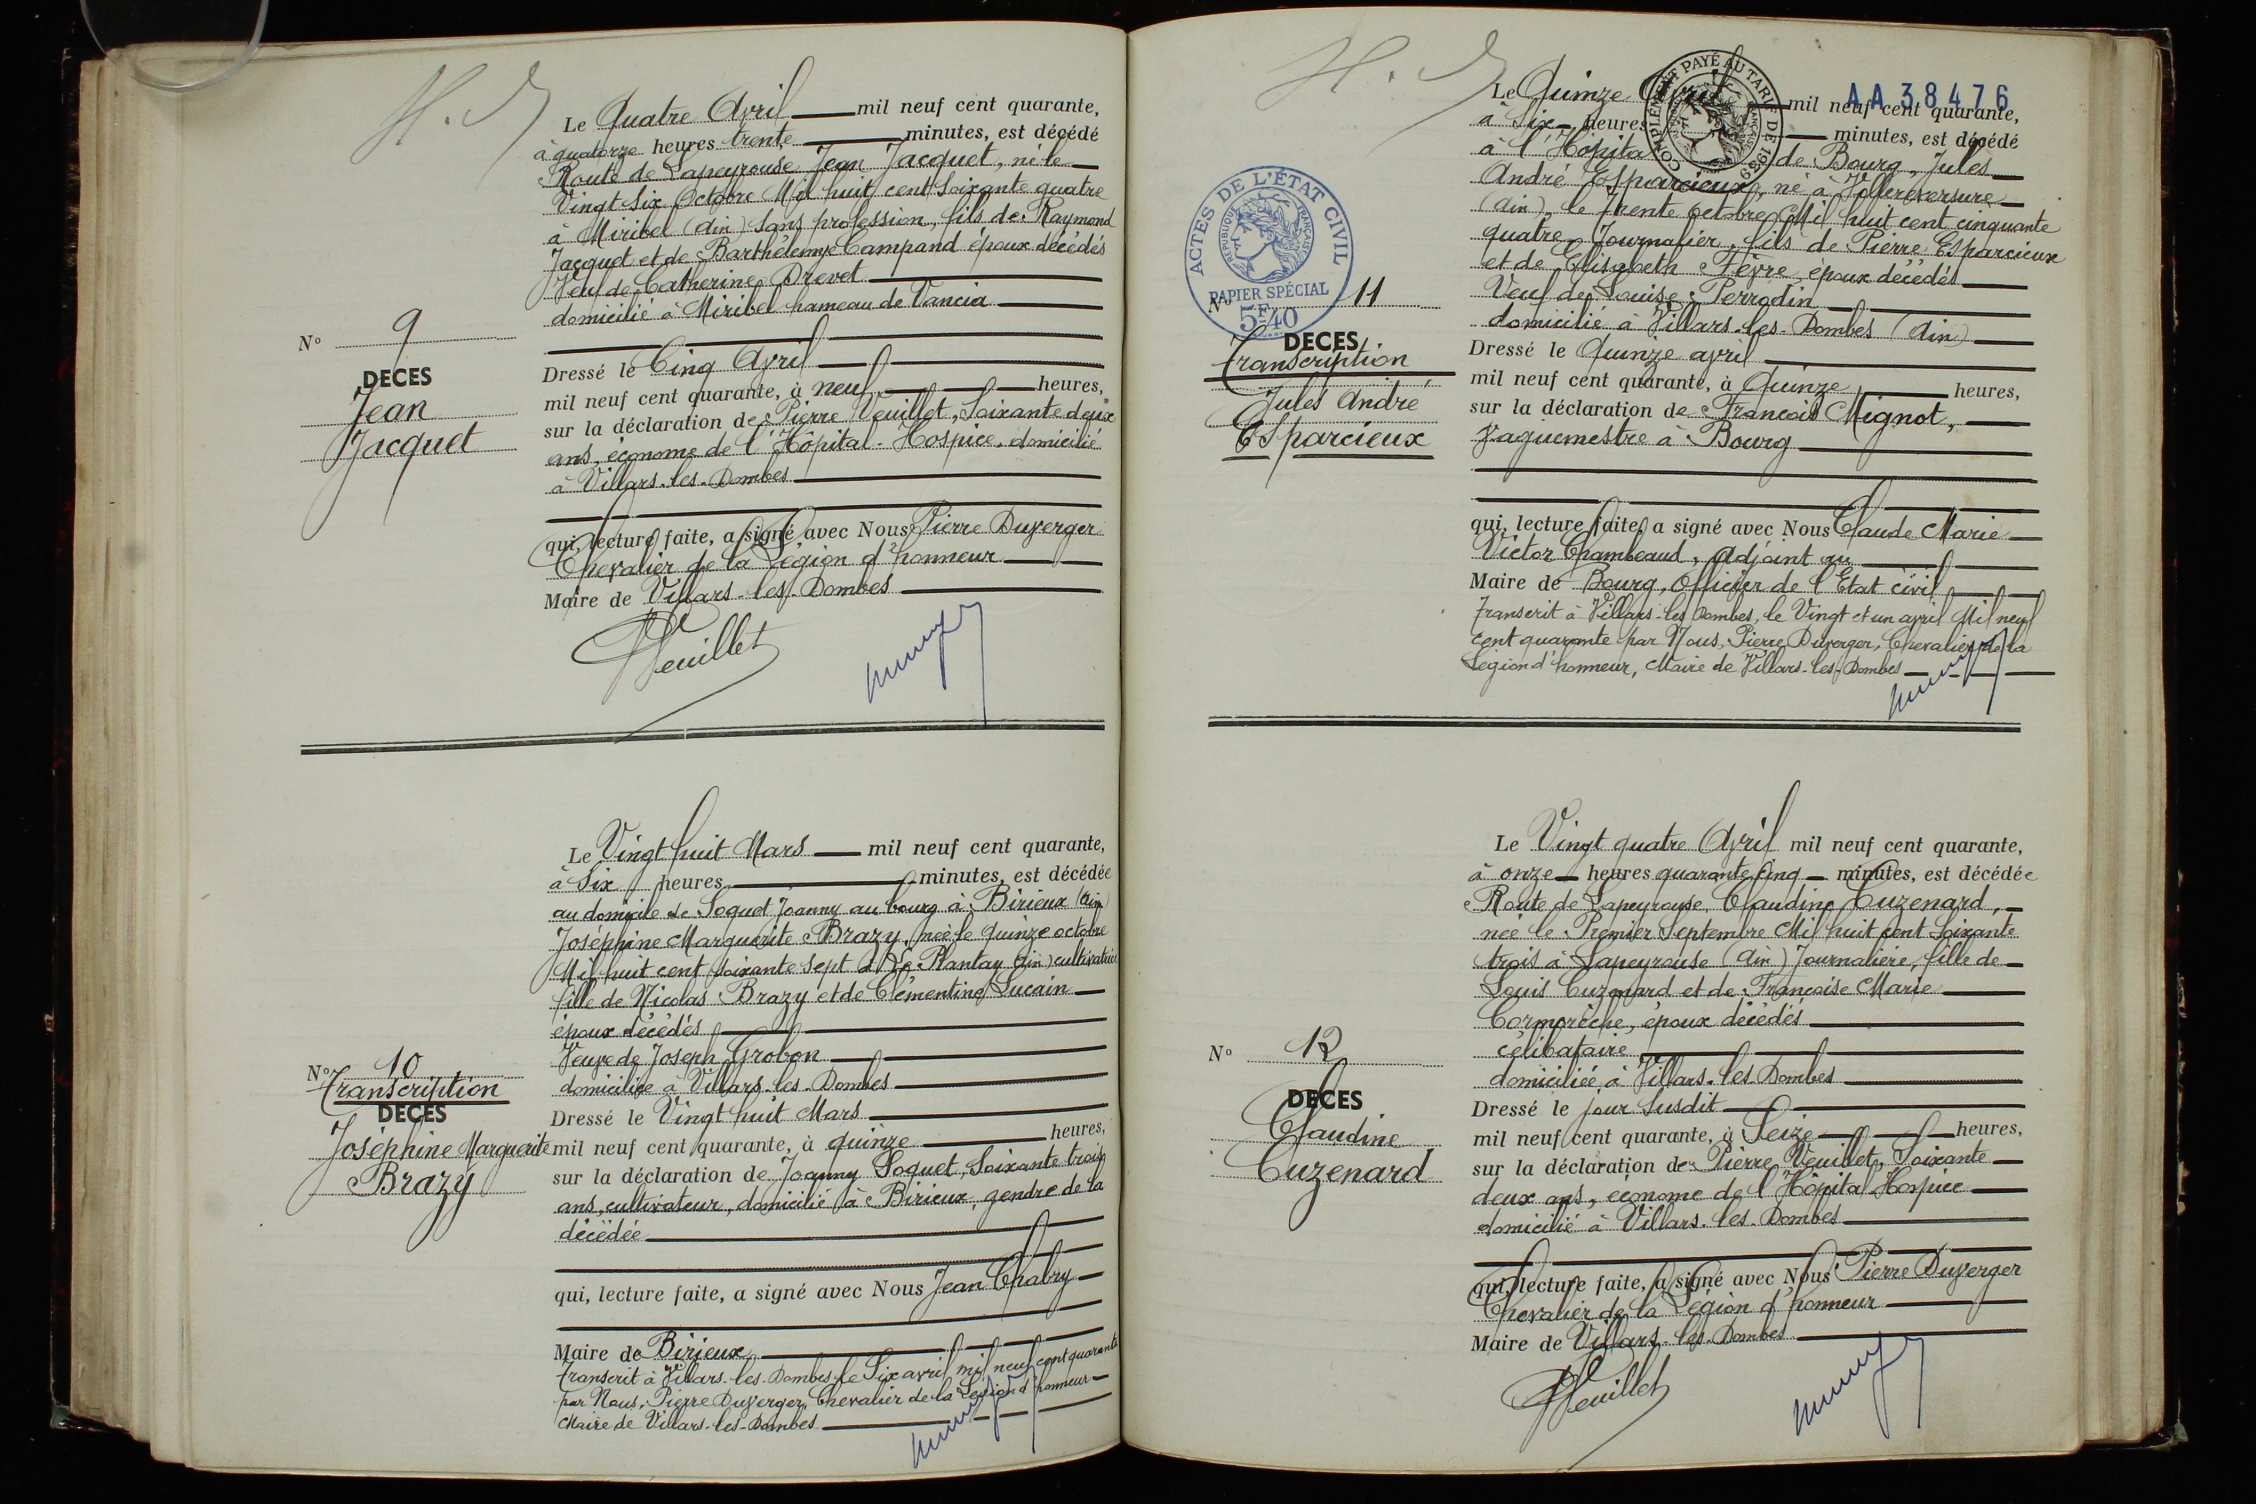 H.
Le Quatre Avril mil neuf cent quarante,
à quatorze heures trente minutes, est décédé
Route de Lapeyrouse Jean Jacquet, né le
Vingt six Octobre Mil huit cent soixante quatre
à Miribel (Ain) sans profession, fils de Raymond
Jacquet et de Barthélemye Campand époux décédés
Veuf de Catherine Drevet
domicilié à Miribel hameau de Vancia
Dressé le Cinq Avril
mil neuf cent quarante, à neuf heures,
sur la déclaration de Pierre Veuillet, Soixante deux
ans, économe de l'Hôpital-Hospice, domicilié
à Villars-les-Dombes
qui, lecture faite, a signé avec Nous Pierre Duverger
Chevalier de la Légion d'honneur
Maire de Villars-les-Dombes
PVeuillet
N° 9
DECES
Jean
Jacquet
Le Vingt huit Mars mil neuf cent quarante,
à Six heures minutes, est décédée
au domicile de Soquet Joanny au bourg à Birieux (Ain)
Joséphine Marguerite Brazy, née le quinze octobre
Mil huit cent soixante sept à Le Plantay (Ain) cultivatrice
fille de Nicolas Brazy et de Clémentine Lucain
époux décédés
Veuve de Joseph Grobon
domiciliée à Villars-les-Dombes
Dressé le Vingt huit Mars
mil neuf cent quarante, à quinze heures,
sur la déclaration de Joanny Soquet, Soixante trois
ans, cultivateur, domicilié à Birieux, gendre de la
décédée
qui, lecture faite, a signé avec Nous Jean Chabry
Maire de Birieux
Transcrit à Villars-les-Dombes, le Six avril mil neuf cent quarante
par Nous, Pierre Duverger, Chevalier de la Légion d'honneur
Maire de Villars-les-Dombes
N° 10
Transcription
DECES
Joséphine Marguerite
Brazy
H.
AA 38476
COMPLÉMENT PAYÉ AU TARIF DE 1939
Le Quinze Avril mil neuf cent quarante,
à Six heures minutes, est décédé
à l'Hôpital de Bourg, Jules
André Esparcieux, né à Villereversure
(Ain), le trente octobre Mil huit cent cinquante
quatre, Journalier, fils de Pierre Esparcieux
et de Elisabeth Fèvre, époux décédés
Veuf de Louise Perrodin
domicilié à Villars-les-Dombes (Ain)
Dressé le Quinze avril
mil neuf cent quarante, à Quinze heures,
sur la déclaration de François Mignot,
vaguemestre à Bourg
qui, lecture faite, a signé avec Nous Claude Marie
Victor Chambeaud, Adjoint au
Maire de Bourg, Officier de l'Etat civil
Transcrit à Villars-les Dombes, le Vingt et un avril Mil neuf
cent quarante par Nous, Pierre Duverger, Chevalier de la
Légion d'honneur, Maire de Villars-les-Dombes
ACTES DE L'ÉTAT CIVIL
RÉPUBLIQUE FRANÇAISE
PAPIER SPÉCIAL
5F40
N° 11
DECES
Transcription
Jules André
Esparcieux
Le Vingt quatre Avril mil neuf cent quarante,
à onze heures quarante cinq minutes, est décédée
Route de Lapeyrouse, Claudine Cuzenard,
née le Premier Septembre Mil huit cent Soixante
trois à Lapeyrouse (Ain) Journalière, fille de
Louis Cuzenard et de Françoise Marie
Cormorèche, époux décédés
célibataire
domiciliée à Villars-les Dombes
Dressé le jour susdit
mil neuf cent quarante, à Seize heures,
sur la déclaration de Pierre Veuillet, Soixante
deux ans, économe de l'Hôpital Hospice
domicilié à Villars-les-Dombes
qui, lecture faite, a signé avec Nous Pierre Duverger
Chevalier de la Légion d'honneur
Maire de Villars-les-Dombes
PVeuillet
N° 12
DECES
Claudine
Cuzenard